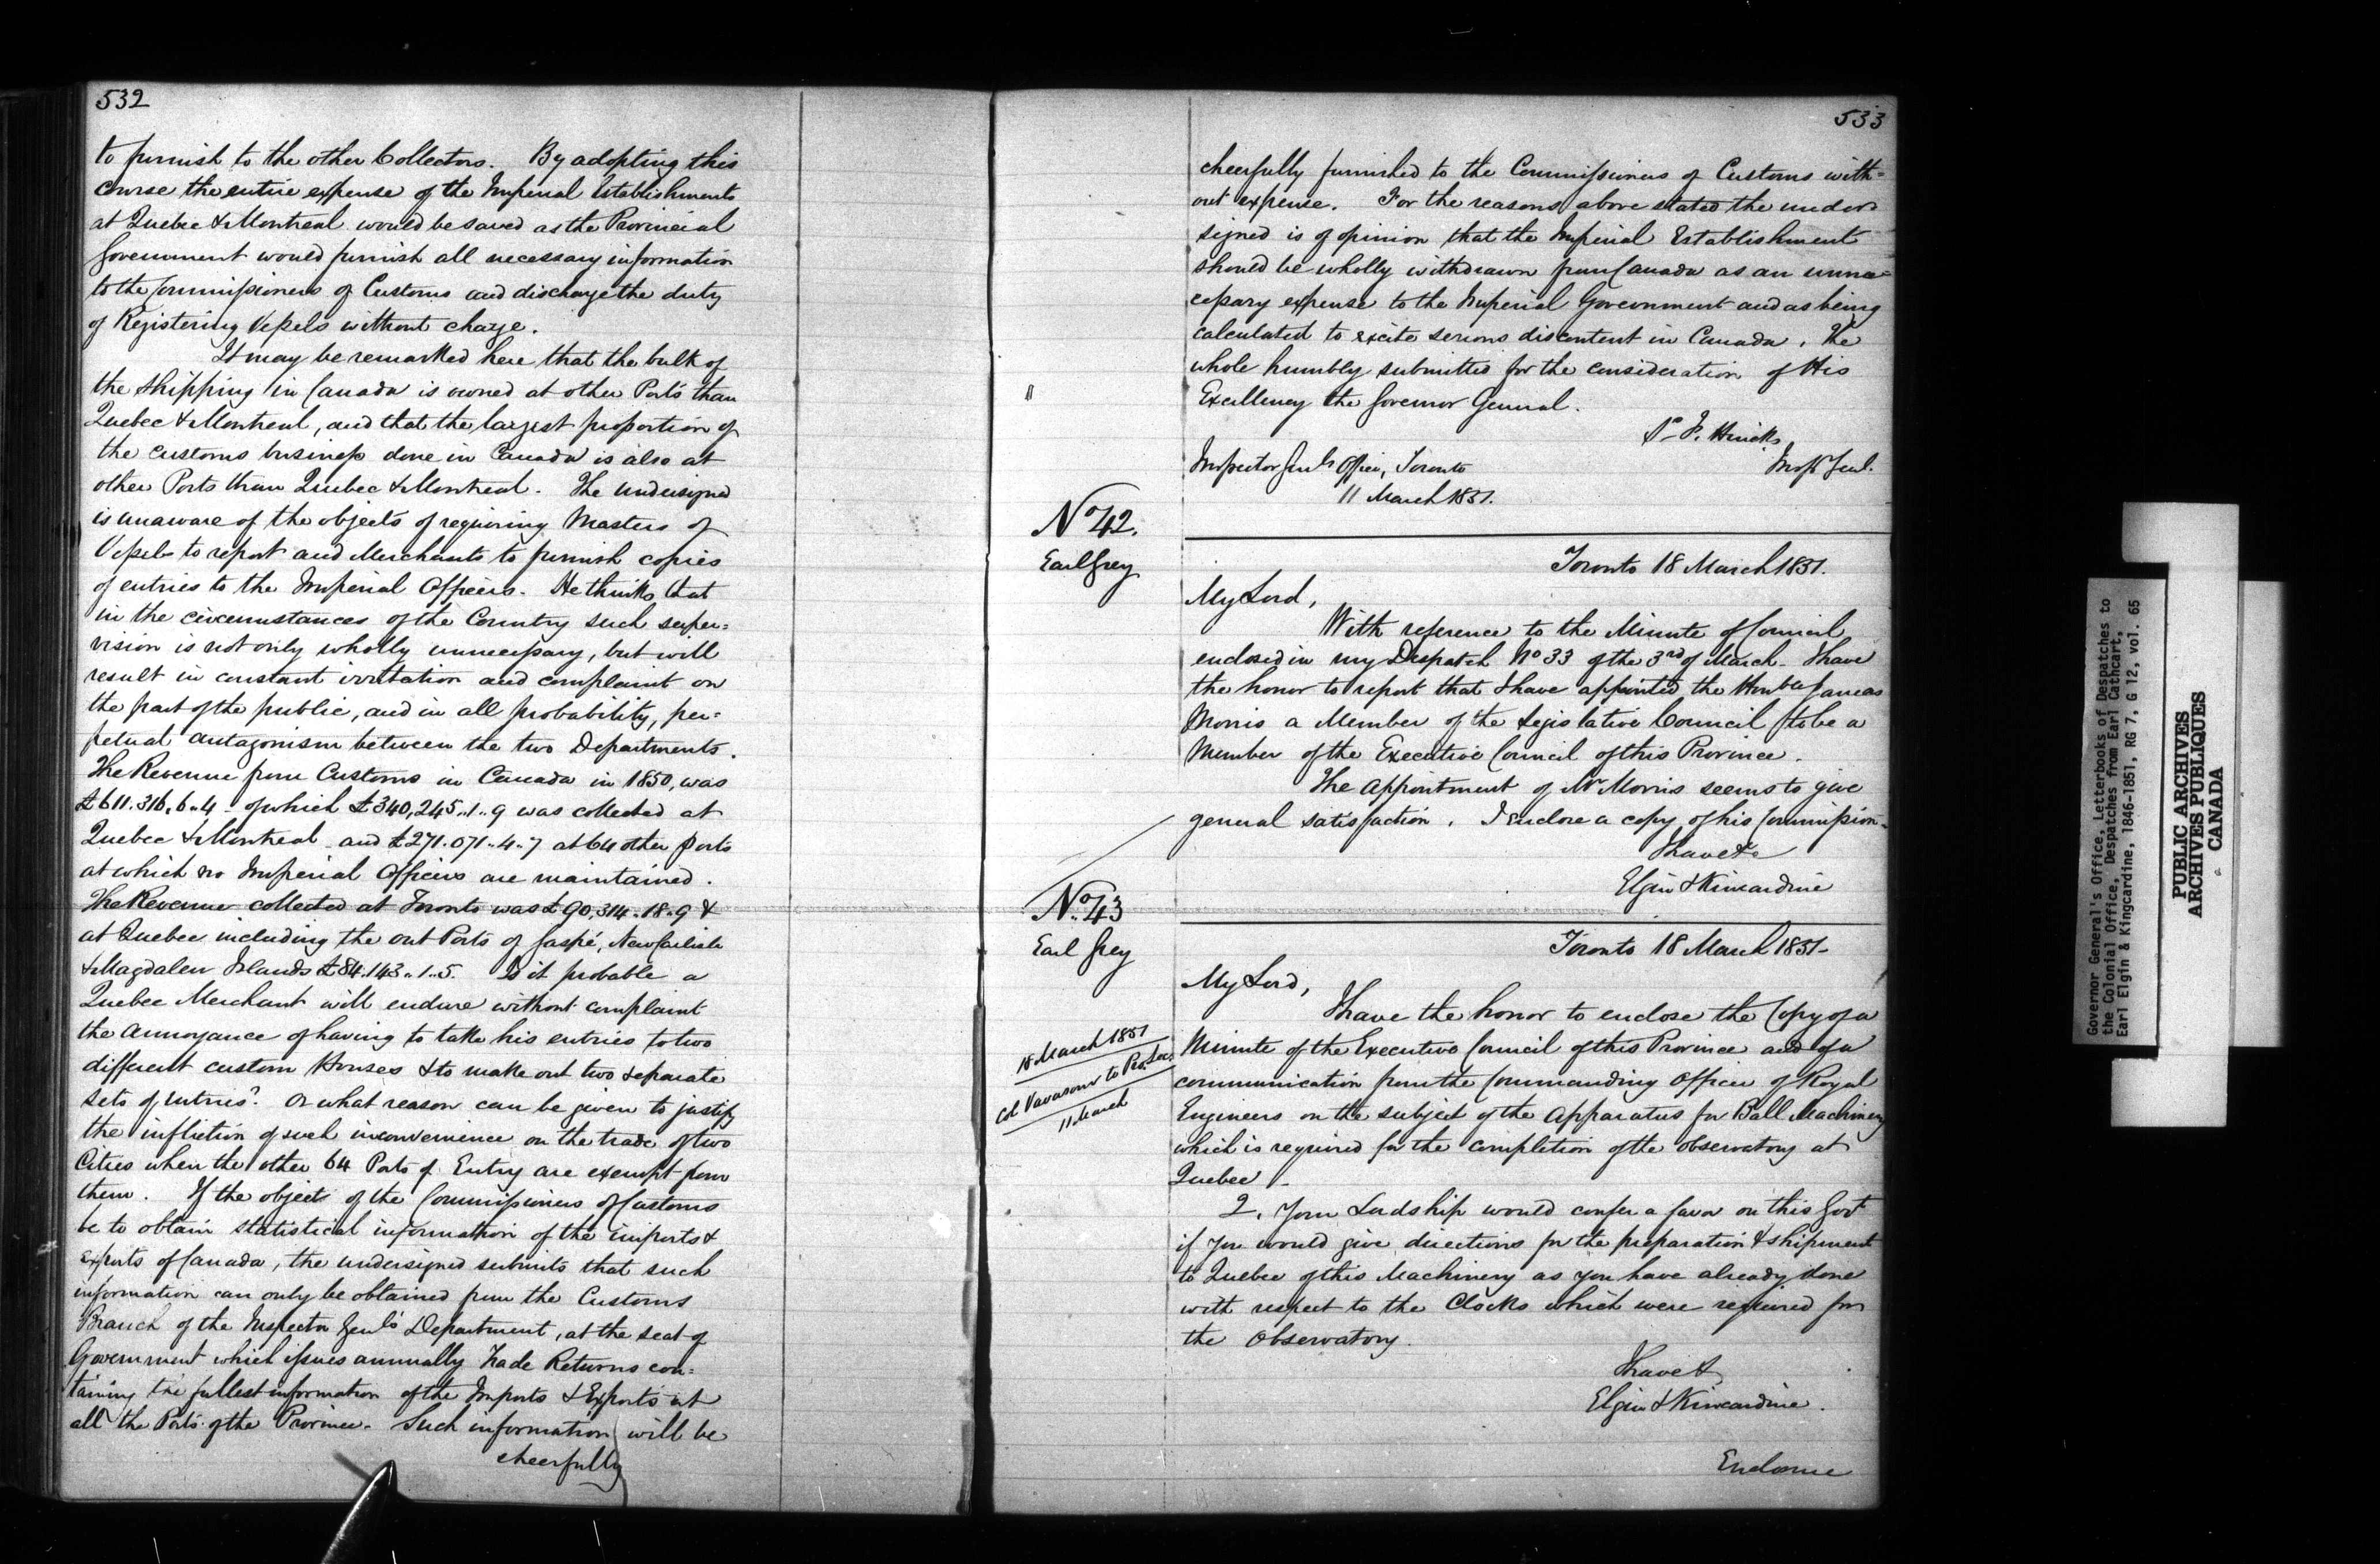 532
to furnish to the other Collectors. By adopting this
course the entire expense of the Imperial Establishments
at Quebec & Montreal would be saved as the Provincial
Government would furnish all necessary information
to the Commissioners of Customs and discharge the duty
of Registering Vessels without charge.
It may be remarked here that the bulk of
the shipping in Canada is owned at other Ports than
Quebec & Montreal, and that the largest proportion of
the Customs business done in Canada is also at
other Ports than Quebec & Montreal. The undersigned
is unaware of the objects of requiring Masters of
Vessels to report and Merchants to furnish copies
of entries to the Imperial Officers. He thinks that
in the circumstances of the Country such super=
vision is not only wholly unnecessary, but will
result in constant irritation and complaint on
the part of the public, and in all probability, per=
petual antagonism between the two Departments.
The Revenue from Customs in Canada in 1850, was
£611.316.6.4 - of which £340,245..1..9 was collected at
Quebec & Montreal and £271.071..4..7 at 64 other ports
at which no Imperial Officers are maintained.
The Revenue collected at Toronto was £90,314..18..9 &
at Quebec including the out Ports of Gaspé, New Carlisle
& Magdalen Islands £84.143..1..5. Is it probable a
Quebec Merchant will endure without complaint
the annoyance of having to take his entries to two
different custom Houses & to make out two separate
sets of entries? Or what reason can be given to justify
the infliction of such inconvenience on the trade of two
Cities when the other 64 Ports of Entry are exempt from
them. If the object of the Commissioners of Customs
be to obtain statistical information of the imports &
exports of Canada, the undersigned submits that such
information can only be obtained from the Customs
Branch of the Inspector Genl's Department, at the seat of
Government which issues annually Trade Returns con=
taining the fullest information of the Imports & Exports at
all the Ports of the Province. Such information will be
cheerfully
533
cheerfully furnished to the Commissioners of Customs with=
out expense. For the reasons above stated the under
signed is of opinion that the Imperial Establishment
should be wholly withdrawn from Canada as an unne=
cessary expense to the Imperial Government and as being
calculated to excite serious discontent in Canada. The
whole humbly submitted for the consideration of His
Excellency the Governor General.
F. Hincks
Insp. Genl.
Inspector Genl's Office, Toronto
11 March 1851.
No 42.
Earl Grey
Toronto 18 March 1851.
My Lord,
With reference to the Minute of Council
enclosed in my Despatch No 33 of the 3rd of March I have
the honor to report that I have appointed the Honble James
Morris a Member of the Legislative Council to be a
Member of the Executive Council of this Province.
The Appointment of Mr Morris seems to give
general satisfaction. I enclose a copy of his Commission.
I have &c
Elgin & Kincardine
No. 43
Earl Grey
Toronto 18 March 1851-
My Lord,
15 March 1851
Col Vavasour to Pro. Sec.
11 March
I have the honor to enclose the Copy of a
Minute of the Executive Council of this Province and of a
communication from the Commanding Officer of Royal
Engineers on the subject of the Apparatus for Ball Machinery
which is required for the completion of the Observatory at
Quebec.
2. Your Lordship would confer a favor on this Govt
if you would give directions for the preparation & shipment
to Quebec of this Machinery as you have already done
with respect to the Clocks which were required for
the Observatory.
I have &
Elgin & Kincardine.
Enclosure
Governor General's Office, Letterbooks of Despatches to
the Colonial Office, Despatches from Earl Cathcart,
Earl Elgin & Kingcardine, 1846-1851, RG 7, G 12, vol. 65
PUBLIC ARCHIVES
ARCHIVES PUBLIQUES
CANADA